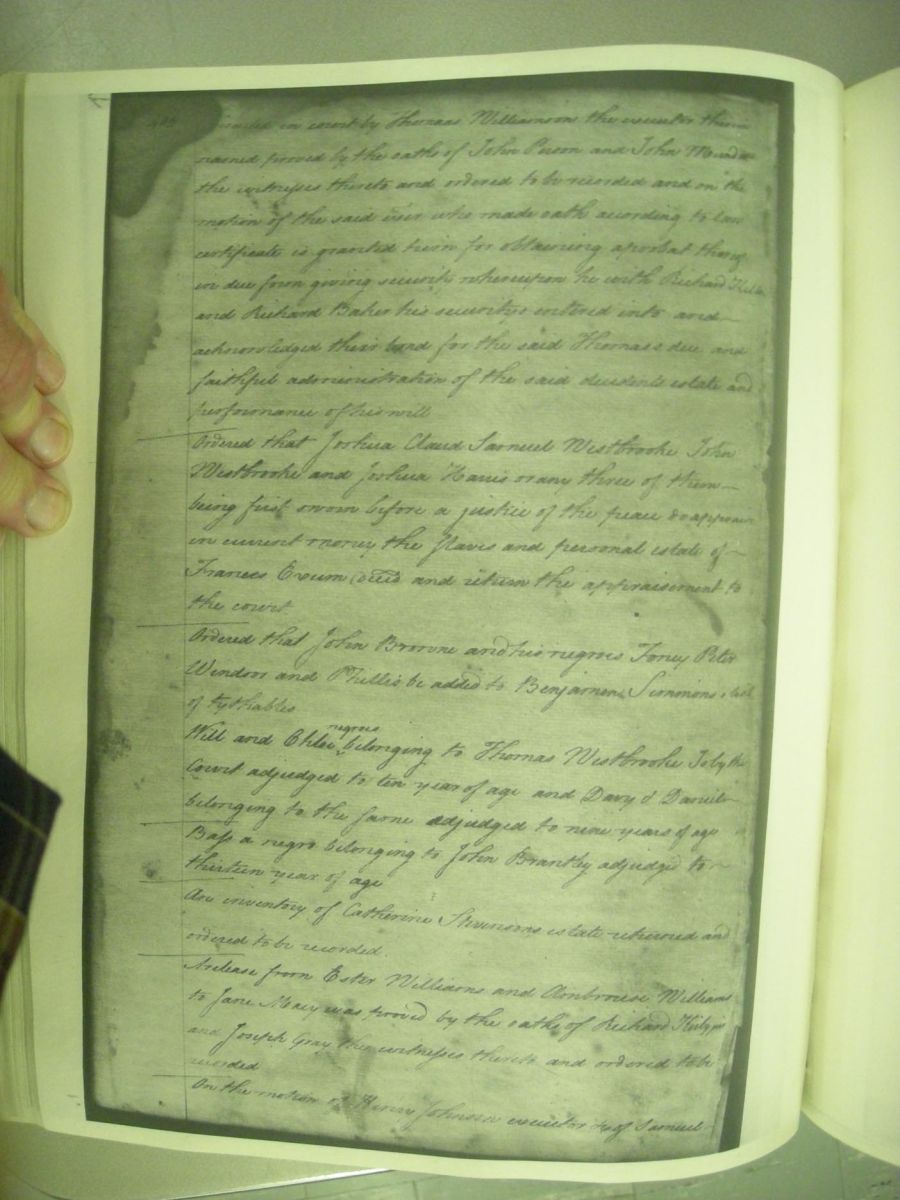 in court by Thomas Williamson the executor therin
named proved by the oaths of John Person and John
the witnesses thereto and ordered to be recorded and on the
motion of the said exer who made oath according to law
certificate is granted him for obtaining a probat thereof
in due form giving security whereupon he with Richard
and Richard Baker his securitys entered into and
acknowledged their bond for the said Thomas's due and
faithful administration of the said decedents estate and
performance of his will
Ordered that Joshua Claud Samuel Westbrooke John
Westbrooke and Joshua Harris or any three of them
being first sworn before a justice of the peace do appraise
in current money the slaves and personal estate of
Frances Exum decd and return the appraisement to
the court
Ordered that John Browne and his negroes Toney Peter
Windsor and Phillis be added to Benjamen Simmons's list
of tythables
Will and Chloe negroes belonging to Thomas Westbrooke Is by the
Court adjudged to ten year of age and Davy & Daniel
belonging to the same adjudged to nine years of age
Bass a negro belonging to John Brantley adjudged to
thirteen year of age
An inventory of Catherine Stevensons estate returned and
ordered to be recorded.
A release from Ester Williams and Ambrouse Williams
to Jane Macy was proved by the oaths of Richard
and Joseph Gray the witnesses thereto and ordered to be
recorded
On the motion of Henry Johnson executor of Samuel